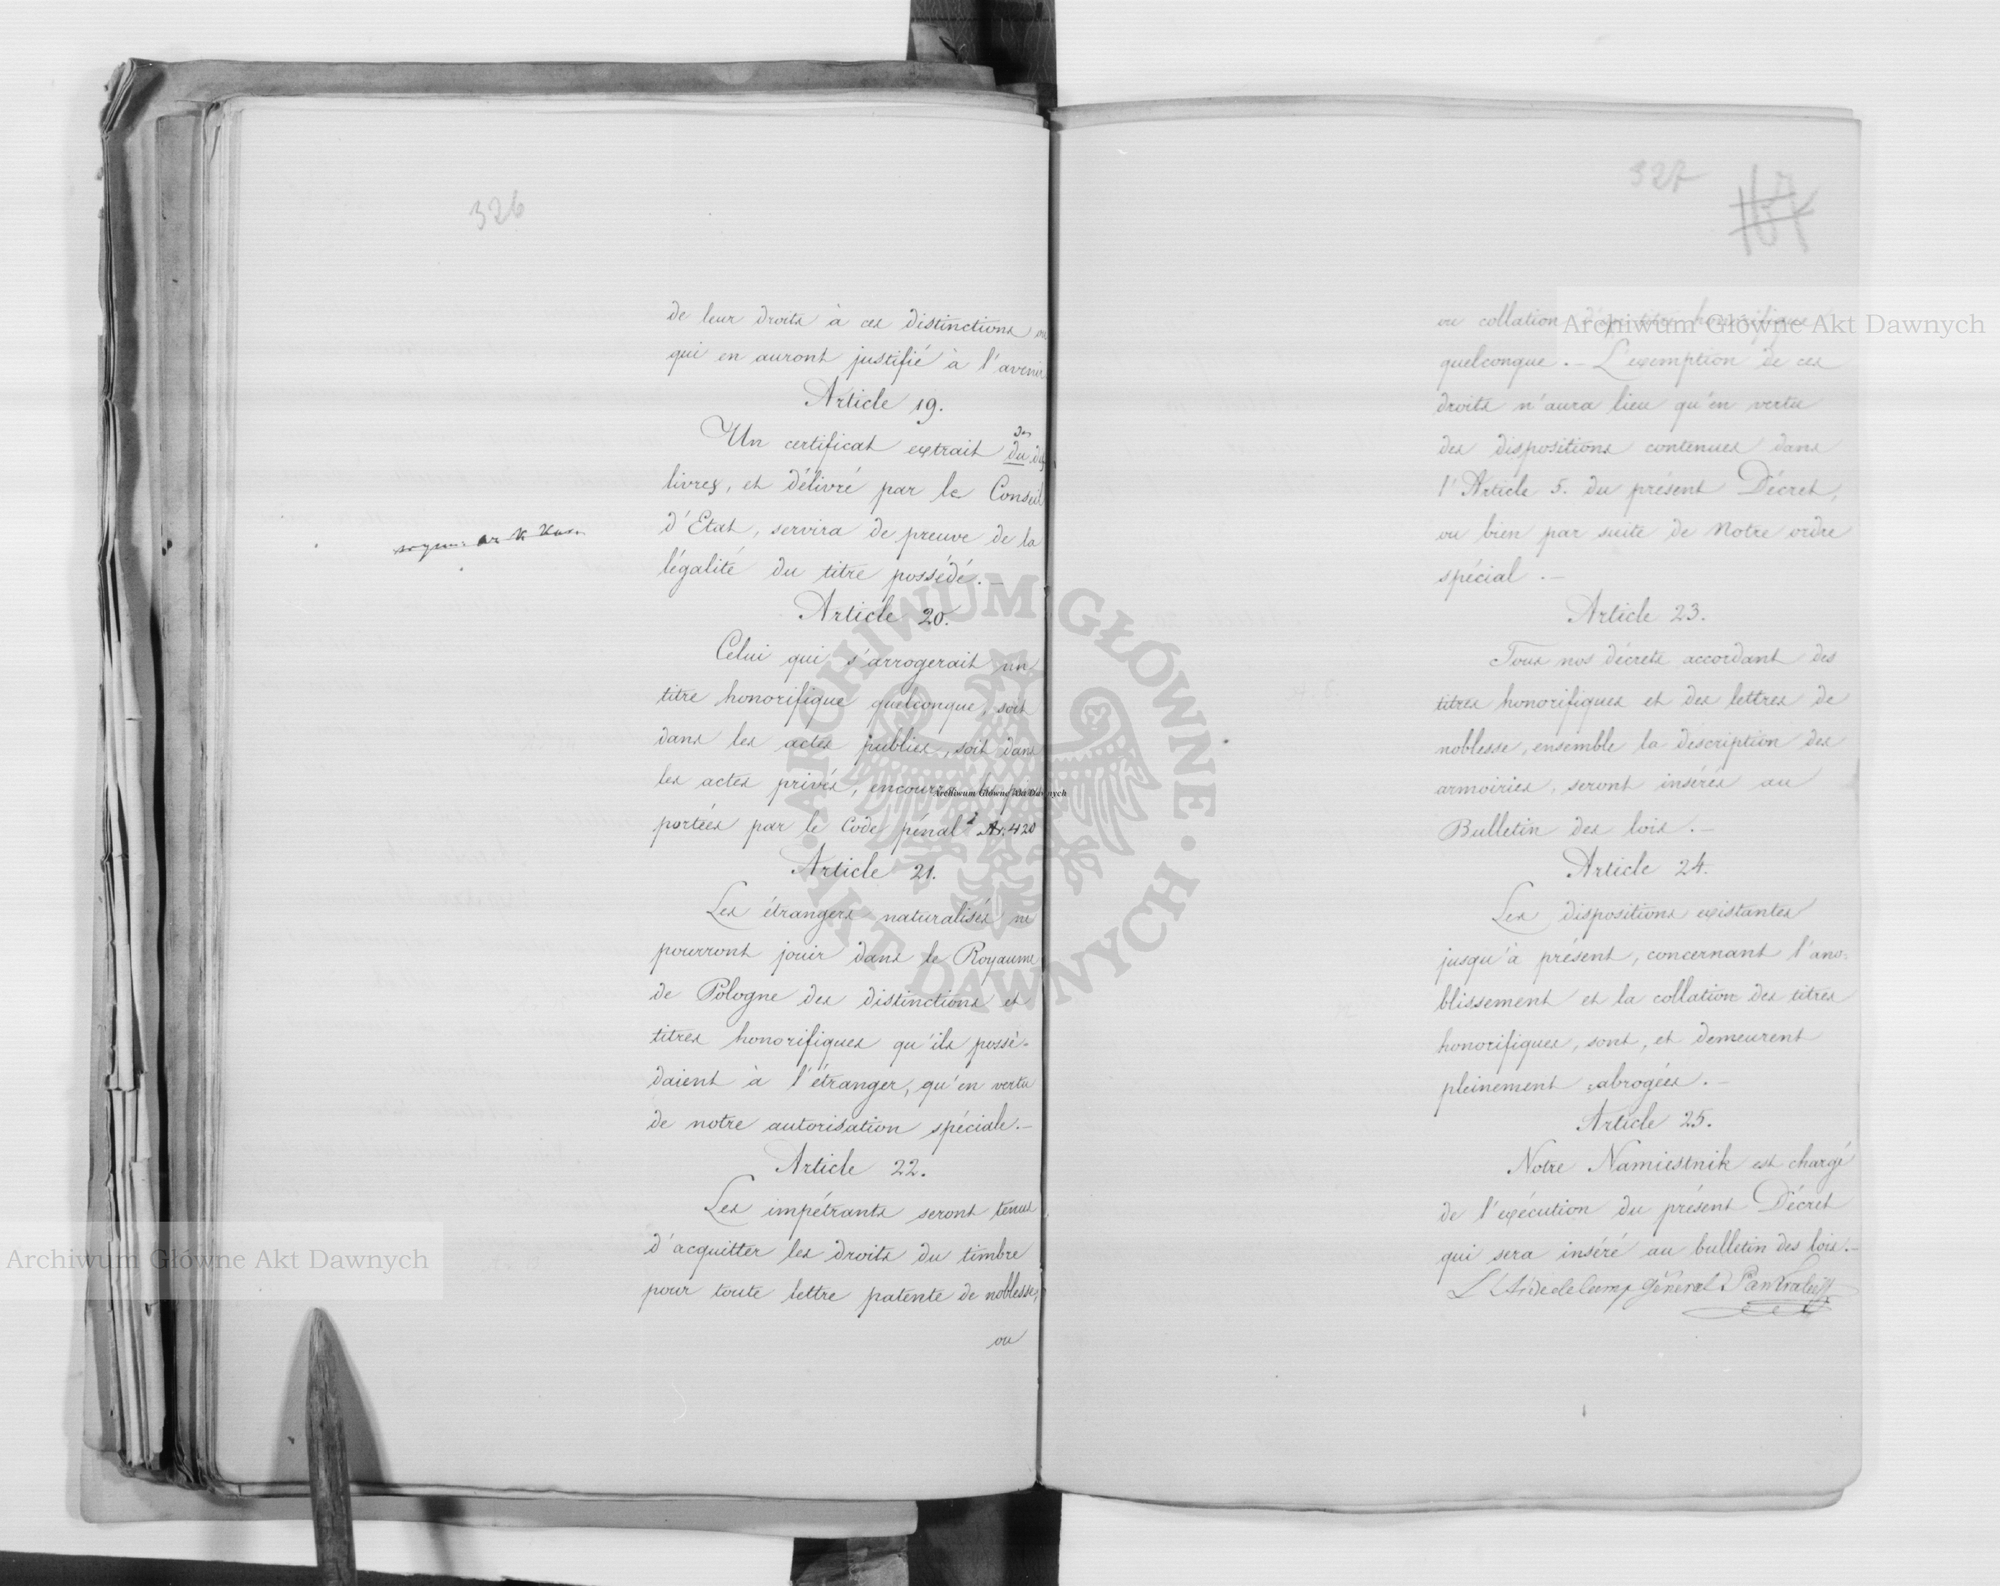 326
de leur droits à ces distinctions ou
qui en auront justifié à l'avenir
Article 19.
des
Un certificat extrait du dits
livres, et délivré par le Conseil
d'Etat, servira de preuve de la
légalité du titre possédé. —
Article 20.
Celui qui s'arrogerait un
titre honorifique quelconque, soit
dans les actes publics, soit dans
les actes privés, encourra les peines
portées par le Code pénal Ar. 420
Article 21.
Les étrangers naturalisés ne
pourront jouir dans le Royaume
de Pologne des distinctions et
titres honorifiques qu'ils possé-
daient à l'étranger, qu'en vertu
de notre autorisation spéciale. —
Article 22.
Les impétrants seront tenus
d'acquitter les droits du timbre
pour toute lettre patente de noblesse,
ou
327
167
ou collation d'un titre honorifique
quelconque. — L'exemption de ces
droits n'aura lieu qu'en vertu
des dispositions contenues dans
l'Article 5. du présent Décret,
ou bien par suite de Notre ordre
spécial. —
Article 23.
Tous nos décrets accordant des
titres honorifiques et des lettres de
noblesse, ensemble la description des
armoiries, seront insérés au
Bulletin des lois. —
Article 24.
Les dispositions existantes
jusqu'à présent, concernant l'ano-
blissement et la collation des titres
honorifiques, sont, et demeurent
pleinement abrogées. —
Article 25.
Notre Namiestnik est chargé
de l'exécution du présent Décret
qui sera inséré au bulletin des lois. —
L'Aide de Camp Général Pankratieff
Archiwum Główne Akt Dawnych
Archiwum Główne Akt Dawnych
Archiwum Główne Akt Dawnych
ARCHIWUM GŁÓWNE · AKT DAWNYCH ·